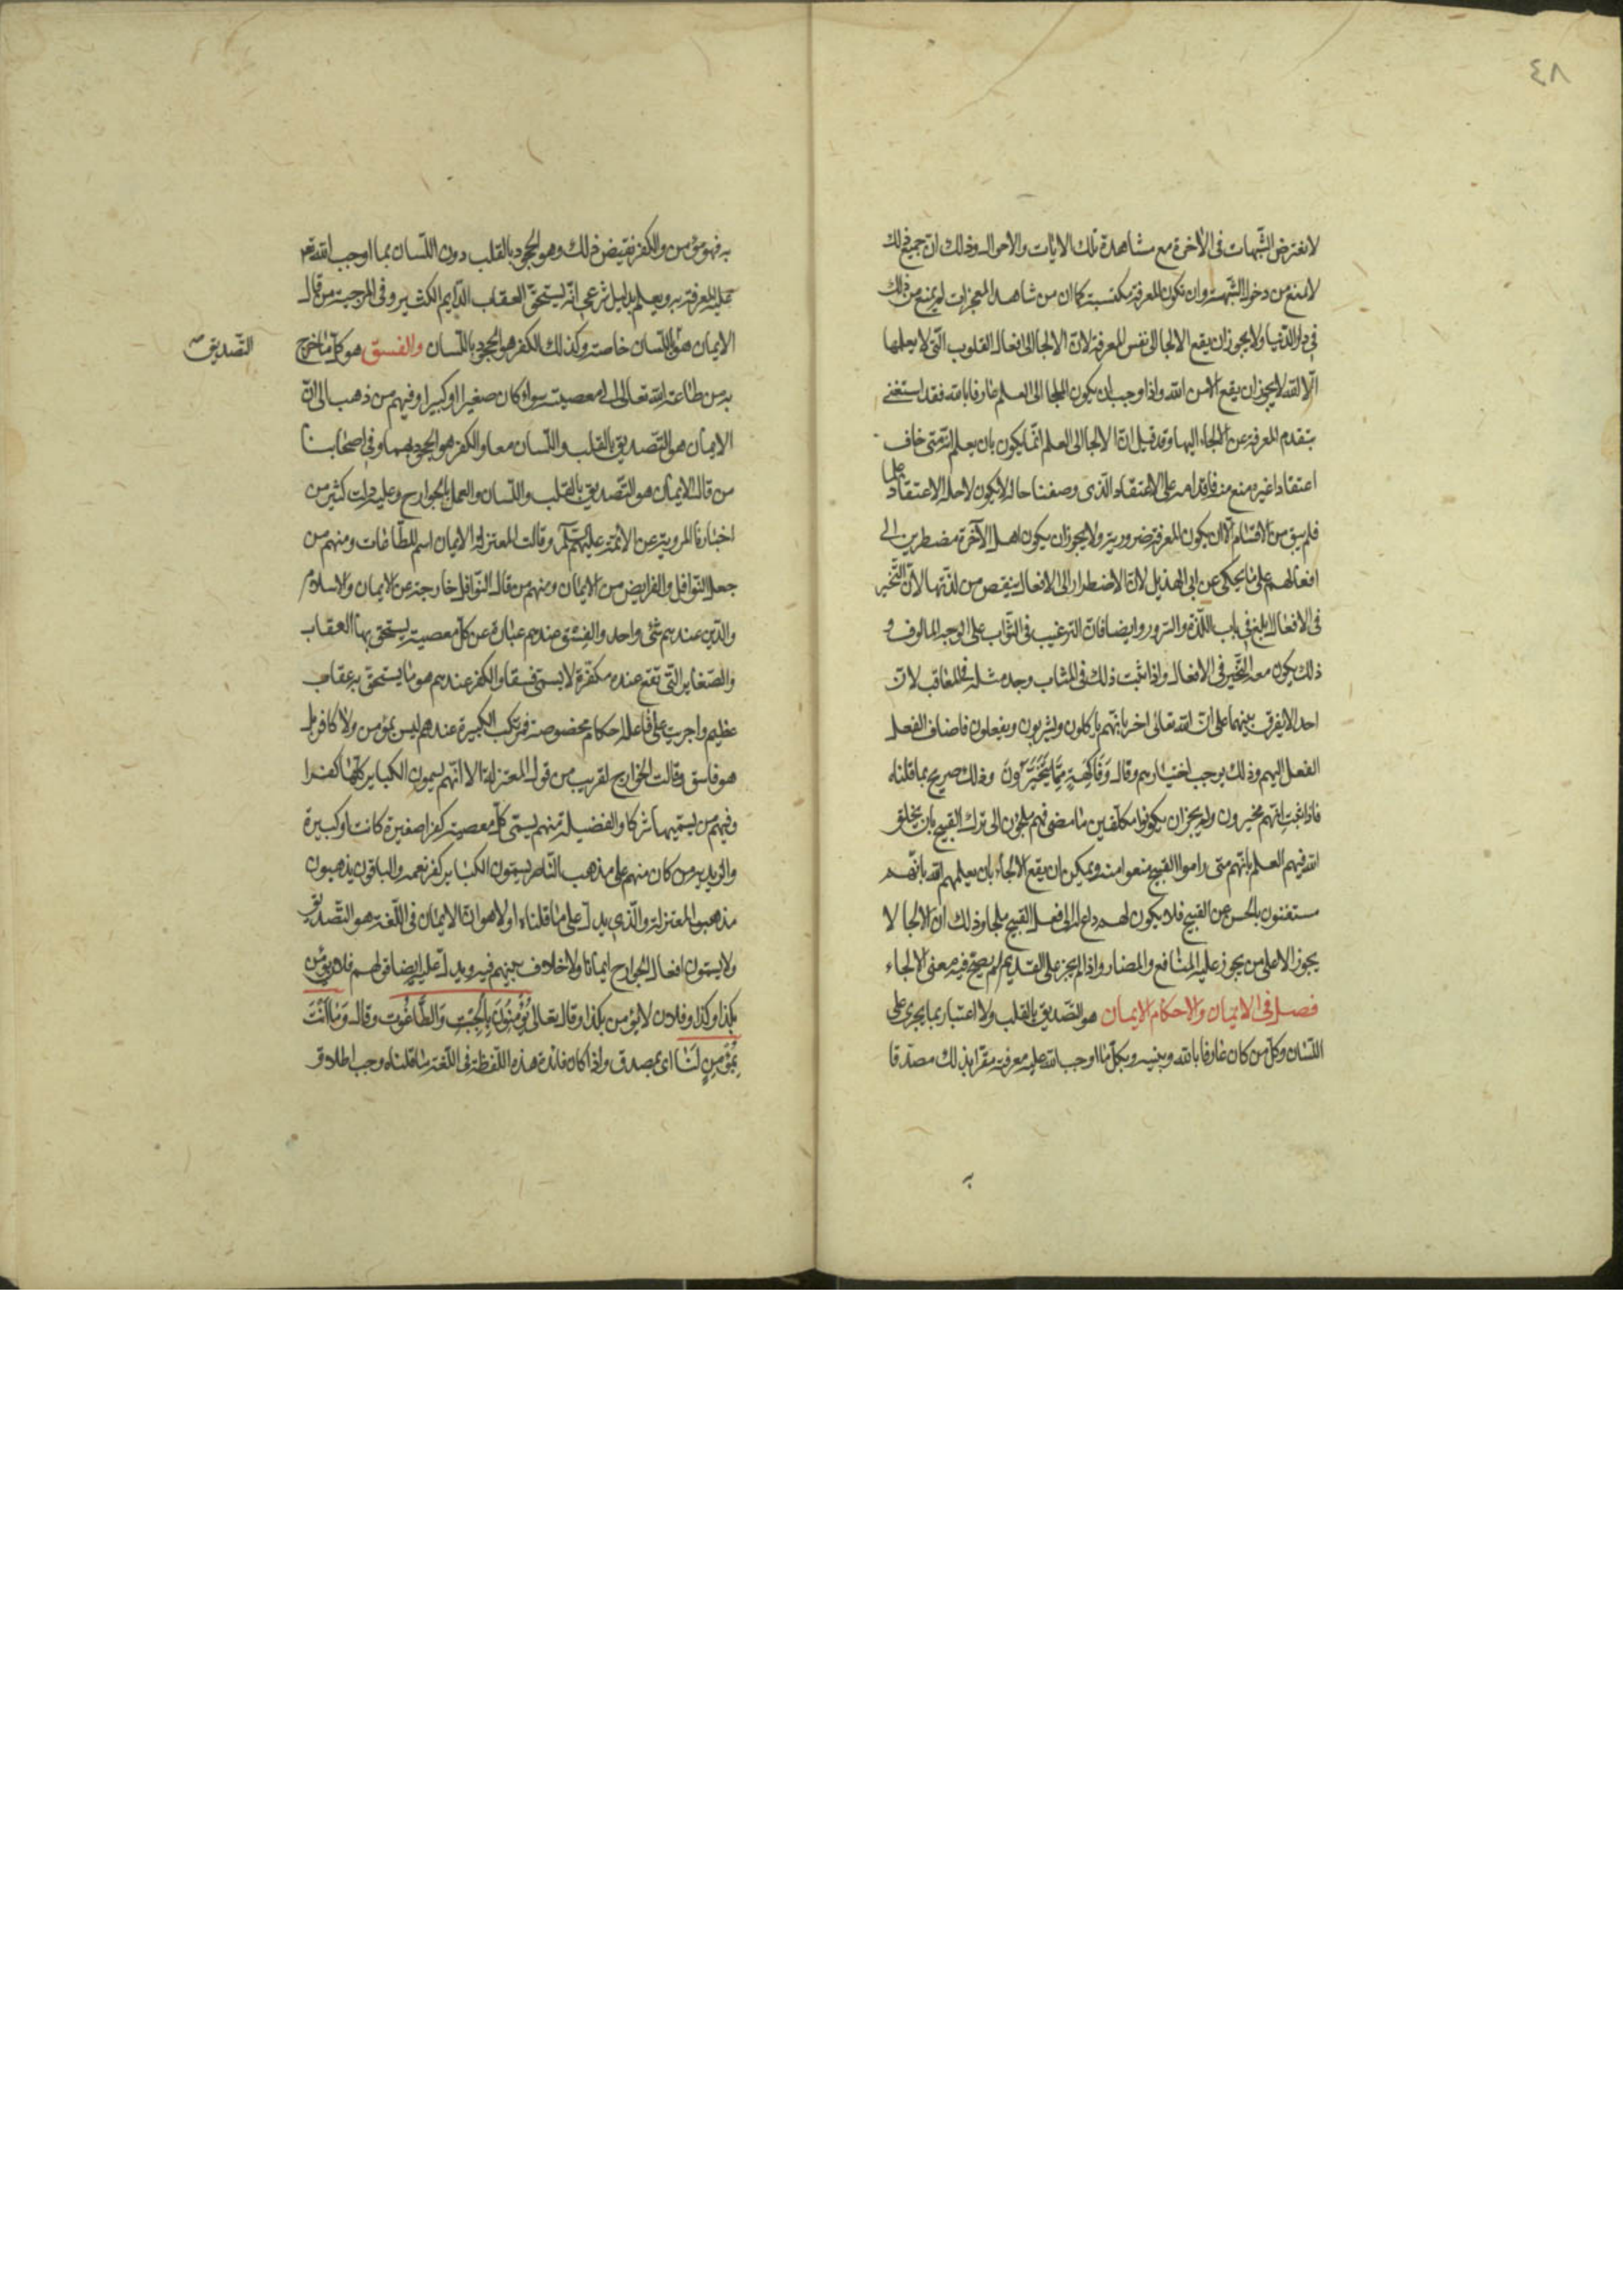 ٤٨
لا نعترض الشبهات فى الاخرة مع مشاهدة تلك الايات والاحوال وذلك ان جميع ذلك
لا يمنع من دخول الشبهة وان تكون المعرفة مكتسبة كما ان من شاهد المعجزات لم يمنع من ذلك
فى دار الدنيا ولا يجوز ان يقع الالجا الى نفس المعرفة لان الالجا الى افعال القلوب التى لا يعلمها
الا الله لا يجوز ان يقع الا من الله واذا وجب ان يكون الملجا الى العلم عارفا بالله فقد استغنى
بتقدم المعرفة عن الالجاء اليها وقد قيل ان الالجا الى العلم انما يكون بان يعلم انه متى خاف
اعتقادا غيره منع منه فاقدامه على الاعتقاد الذى وصفنا حاله لا يكون لاجله الاعتقاد علما
فلم يبق من الاقسام الا ان يكون المعرفة ضرورية ولا يجوز ان يكون اهل الآخرة مضطرين الى
افعالهم على ما يحكى عن ابى الهذيل لان الاضطرار الى الافعال ينقص من لذتها لان التخير
فى الافعال ابلغ فى باب اللذة والسرور وايضا فان الترغيب فى الثواب على الوجه المالوف و
ذلك يكون معه التخير فى الافعال واذا ثبت ذلك فى المثاب وجب مثله فى المعاقب لان
احدا لا يفرق بينهما على ان الله تعالى اخبر بانهم ياكلون ويشربون ويفعلون فاضاف الفعل
الفعل اليهم وذلك يوجب اختيارهم وقال وَفَاكِهَةٍ مِمَّا يَتَخَيَّرُونَ وذلك صريح بما قلناه
فاذا ثبت انهم مخيرون ولم يجز ان يكونوا مكلفين لما مضى فهم ملجؤن الى ترك القبيح بان يخلق
الله فيهم العلم بانهم متى راموا القبيح منعوا منه ويمكن ان يقع الالجاء بان يعلمهم الله بانهم
مستغنون بالحسن عن القبيح فلا يكون لهم داع الى فعل القبيح ملجا وذلك ان الالجا لا
يجوز الا على من يجوز عليه المنافع والمضار واذا لم يجز على القديم لم يصح فيه معنى الالجاء
فصل فى الايمان والاحكام الايمان هو التصديق بالقلب ولا اعتبار بما يجرى على
اللسان وكل من كان عارفا بالله وبنبيه وبكل ما اوجب الله عليه معرفته مقرا بذلك مصدقا
به
به فهو مؤمن والكفر نقيض ذلك وهو الجحود بالقلب دون اللسان بما اوجب الله تع
عليه المعرفة به ويعلم بدليل شرعى انه يستحق العقاب الدايم الكثير وفى المرجئة من قال
الايمان هو اللسان خاصة وكذلك الكفر هو الجحود باللسان والفسق هو كل ما خرج
التصديق صح
به من طاعة الله تعالى الى معصيته سواء كان صغيرا او كبيرا وفيهم من ذهب الى ان
الايمان هو التصديق بالقلب واللسان معا والكفر هو الجحود بهما وفى اصحابنا
من قال الايمان هو التصديق بالقلب واللسان والعمل بالجوارح وعليه دلت كثير من
اخبارنا المروية عن الائمة عليهم السلم وقالت المعتزلة الايمان اسم للطاعات ومنهم من
جعل النوافل والفرايض من الايمان ومنهم من قال النوافل خارجة عن الايمان والاسلام
والدين عندهم شئ واحد والفسق عندهم عبارة عن كل معصية يستحق بها العقاب
والصغاير التى تقع عنده مكفرة لا يسمى فسقا والكفر عندهم هو ما يستحق به عقاب
عظيم واجريت على فاعله احكام مخصوصة فمرتكب الكبيرة عندهم ليس بمؤمن ولا كافر بل
هو فاسق وقالت الخوارج لقريب من قول المعتزلة الا انهم يسمون الكباير كلها كفرا
وفيهم من يسميها شركا والفضيلة منهم يسمى كل معصية كفرا صغيرة كانت او كبيرة
والزيدية من كان منهم على مذهب الناصر يسمون الكباير كفر نعمة والباقون يذهبون
مذهب المعتزلة والذى يدل على ما قلناه اولا هو ان الايمان فى اللغة هو التصديق
ولا يسمون افعال الجوارح ايمانا ولا خلاف بينهم فيه ويدل عليه ايضا قولهم فلان يؤمن
بكذا وكذا وفلان لا يؤمن بكذا وقال تعالى يُؤْمِنُونَ بِالْجِبْتِ وَالطَّاغُوتِ وقال وَمَا أَنْتَ
بِمُؤْمِنٍ لَنَا اى بمصدق واذا كان فائدة هذه اللفظة فى اللغة ما قلناه وجب اطلاق